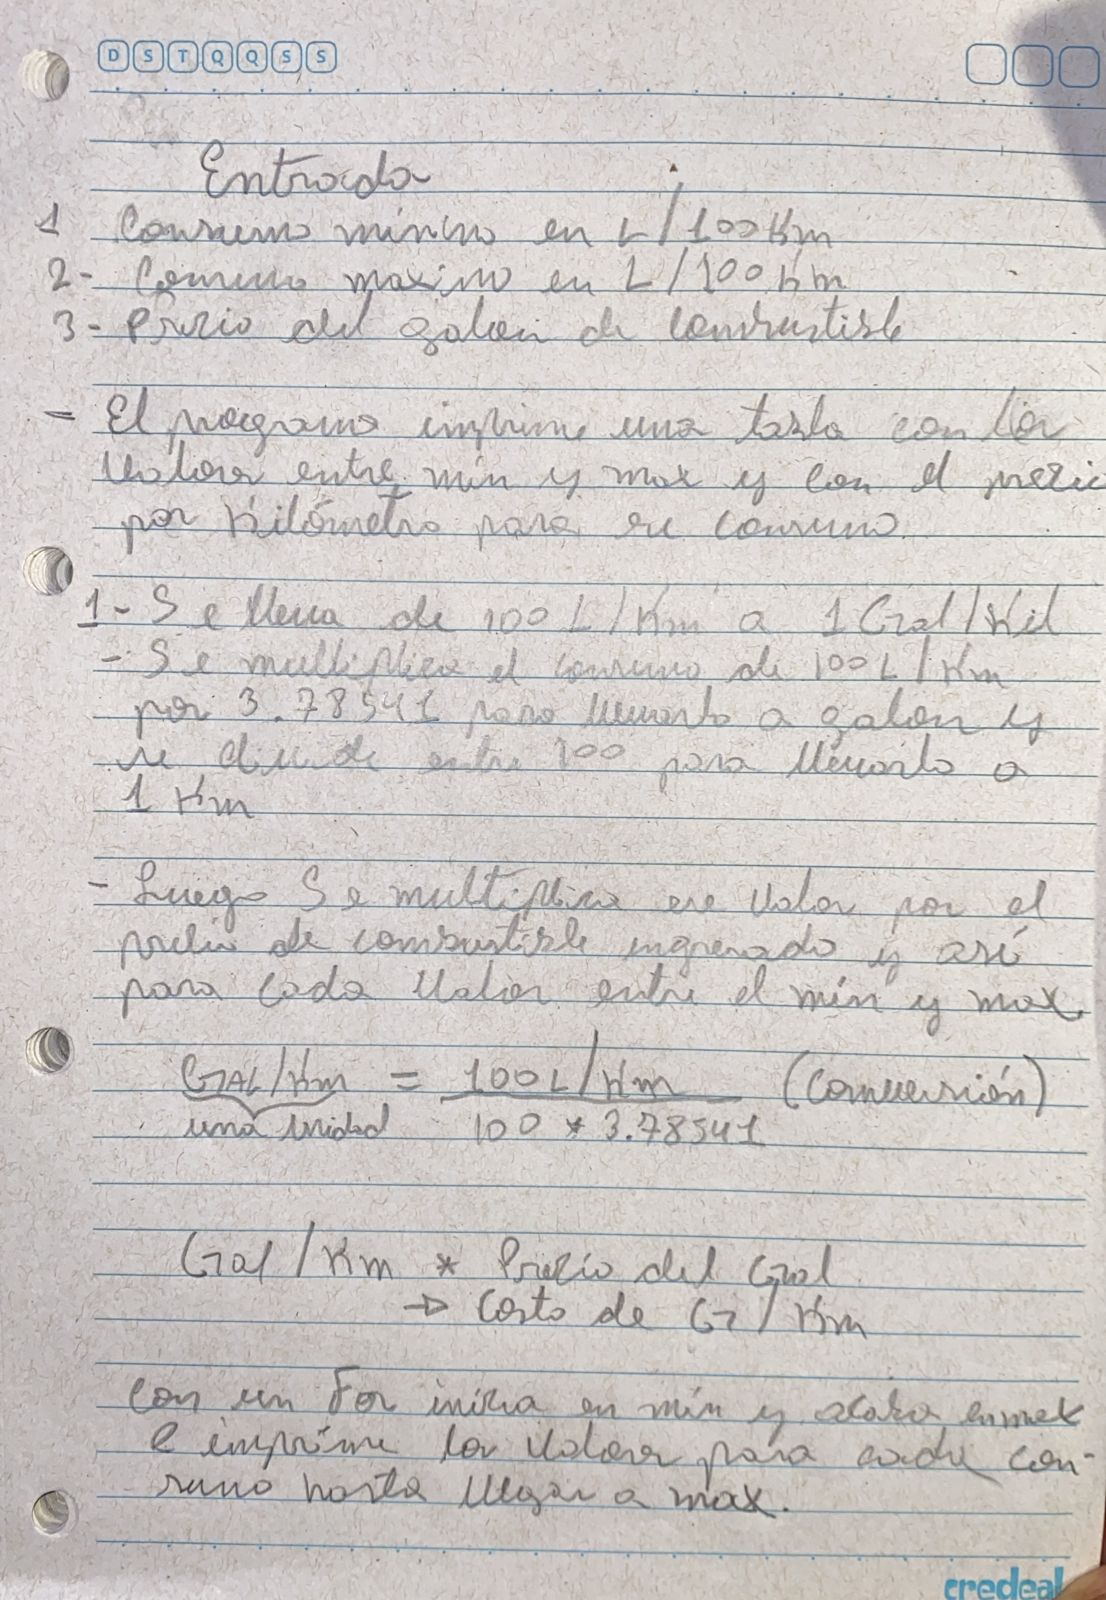 D S T Q Q S S
Entrada
1 Consumo mínimo en L/100Km
2- Consumo maximo en L/100Km
3- Precio del galon de combustible
- El programa imprime una tabla con los
valores entre min y max y con el precio
por kilómetro para su consumo.
1- Se lleva de 100L/Km a 1Gal/Kil
- Se multiplica el consumo de 100L/Km
por 3.78541 para llevarlo a galon y
se divide entre 100 para llevarlo a
1 Km
- Luego Se multiplica ese valor por el
precio de combustible ingresado y así
para cada valor entre el min y max.
GAL/Km = 100L/Km (Conversión)
una unidad 100 * 3.78541
Gal/Km * Precio del Gal
→ Costo de G/Km
con un For inicia en min y acaba en max
e imprime los valores para cada con-
sumo hasta llegar a max.
credeal